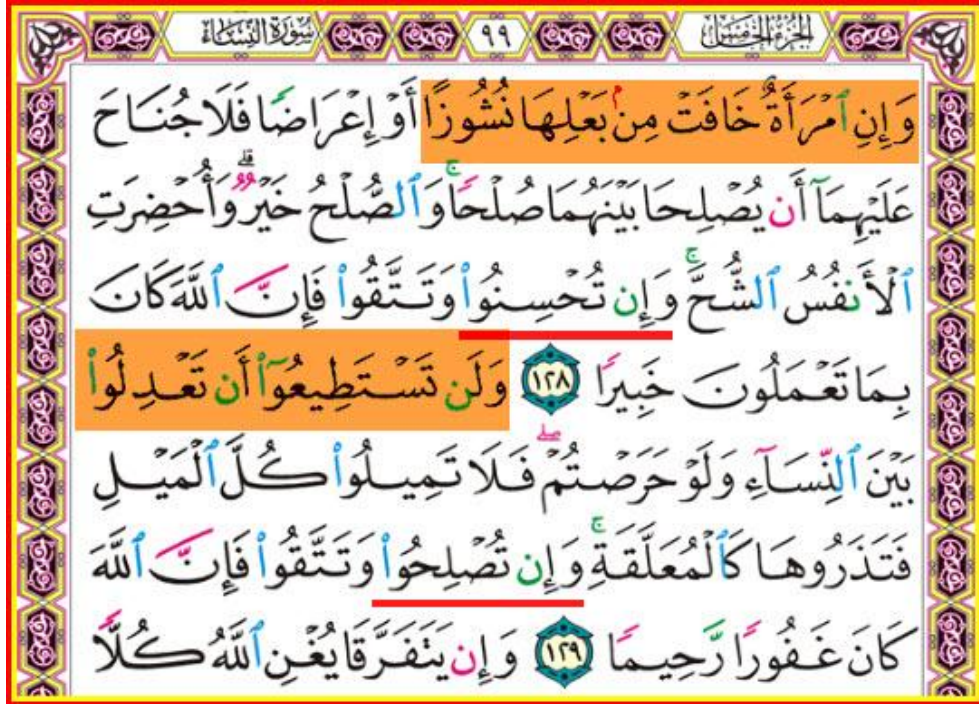 سُورَةُ النِّسَاءِ ٩٩ الجُزْءُ الخَامِسُ
وَإِنِ ٱمْرَأَةٌ خَافَتْ مِنۢ بَعْلِهَا نُشُوزًا أَوْ إِعْرَاضًا فَلَا جُنَاحَ
عَلَيْهِمَآ أَن يُصْلِحَا بَيْنَهُمَا صُلْحًا ۚ وَٱلصُّلْحُ خَيْرٌ ۗ وَأُحْضِرَتِ
ٱلْأَنفُسُ ٱلشُّحَّ ۚ وَإِن تُحْسِنُوا۟ وَتَتَّقُوا۟ فَإِنَّ ٱللَّهَ كَانَ
بِمَا تَعْمَلُونَ خَبِيرًا ١٢٨ وَلَن تَسْتَطِيعُوٓا۟ أَن تَعْدِلُوا۟
بَيْنَ ٱلنِّسَآءِ وَلَوْ حَرَصْتُمْ ۖ فَلَا تَمِيلُوا۟ كُلَّ ٱلْمَيْلِ
فَتَذَرُوهَا كَٱلْمُعَلَّقَةِ ۚ وَإِن تُصْلِحُوا۟ وَتَتَّقُوا۟ فَإِنَّ ٱللَّهَ
كَانَ غَفُورًا رَّحِيمًا ١٢٩ وَإِن يَتَفَرَّقَا يُغْنِ ٱللَّهُ كُلًّا